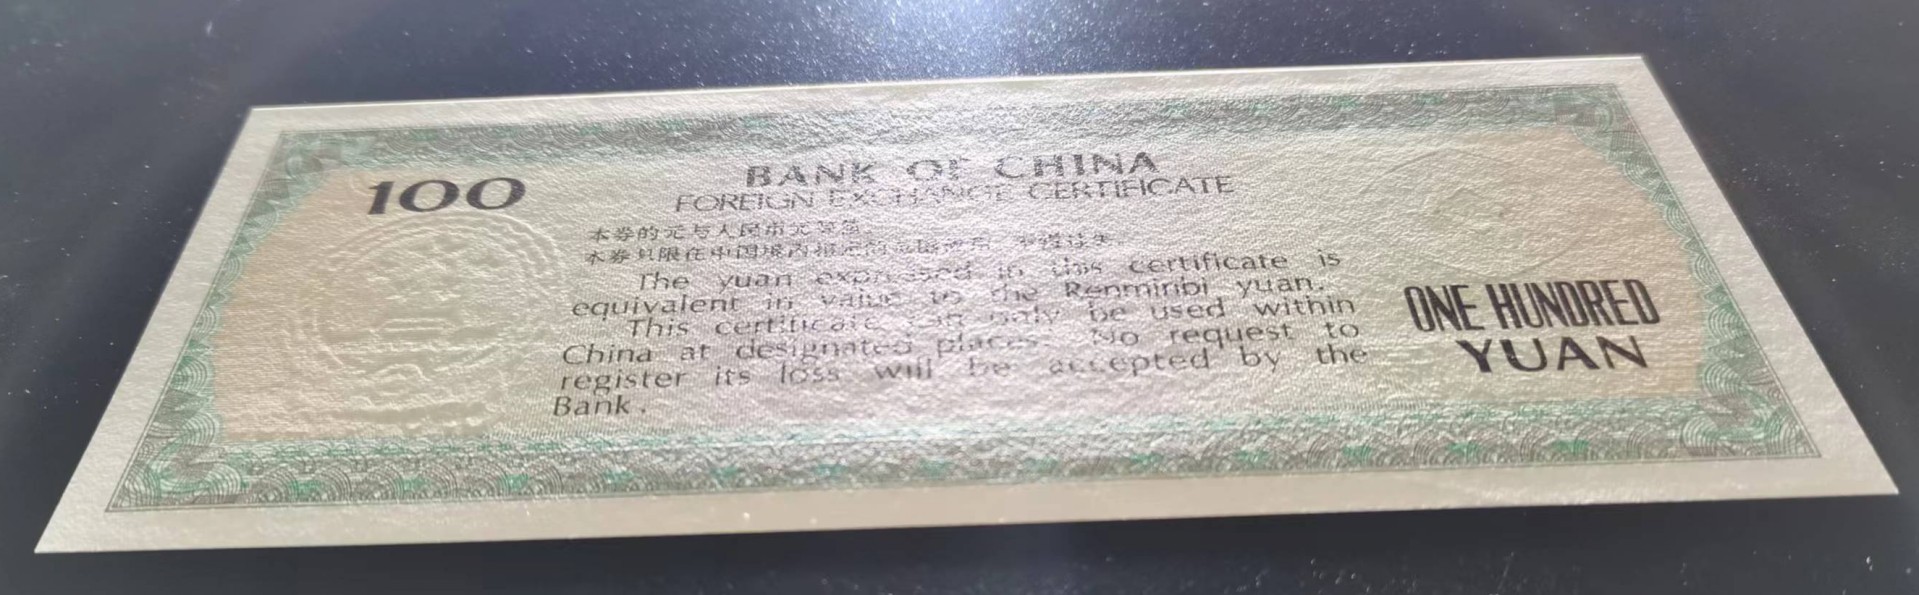 100
BANK OF CHINA
FOREIGN EXCHANGE CERTIFICATE
本券的元与人民币元等值。
本券只限在中国境内指定的范围使用，不得挂失。
The yuan expressed in this certificate is
equivalent in value to the Renminbi yuan.
This certificate can only be used within
China at designated places. No request to
register its loss will be accepted by the
Bank.
ONE HUNDRED
YUAN